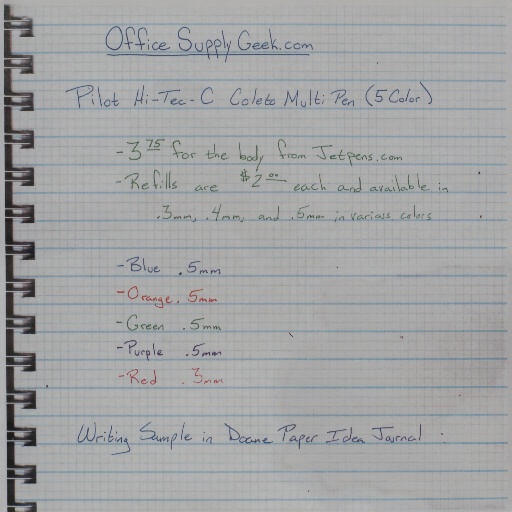 OfficeSupplyGeek.com
Pilot Hi-Tec-C Coleto Multi Pen (5 Color)
-3 75 for the body from Jetpens.com
-Refills are $2 00 each and available in
.3mm, .4mm, and .5mm in various colors
-Blue .5mm
-Orange .5mm
-Green .5mm
-Purple .5mm
-Red .3mm
Writing Sample in Doane Paper Idea Journal